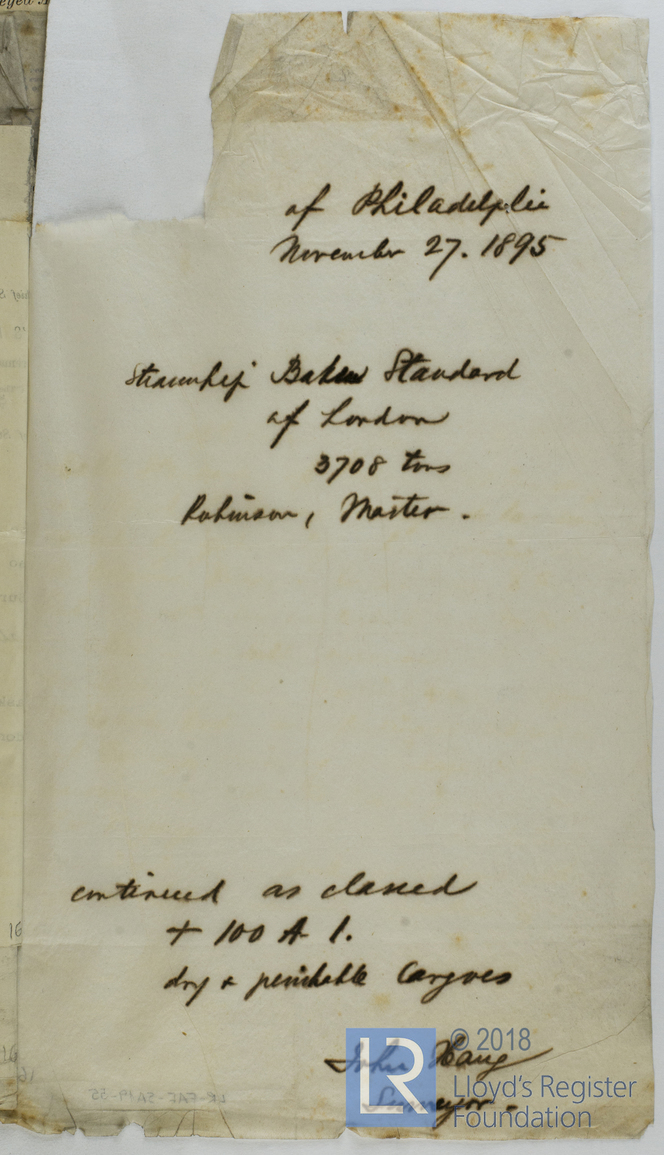 of Philadelphia
November 27. 1895
Steamship Baku Standard
of London
3708 tons
Robinson, Master.
continued as classed
+ 100 A 1.
dry & perishable Cargoes
John Haug
Surveyor.
LR
© 2018
Lloyd's Register
Foundation